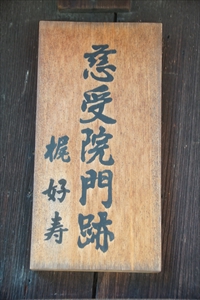 慈受院門跡
梶好寿